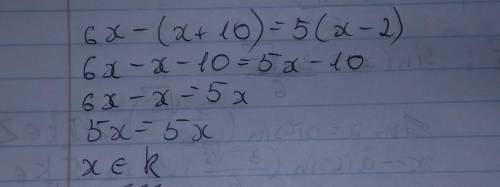 6x-(x+10)=5(x-2)
6x-x-10=5x-10
6x-x=5x
5x=5x
x∈k